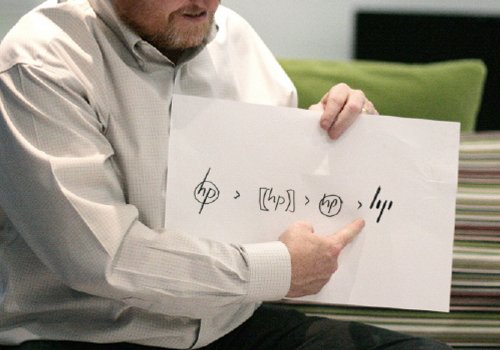 hp > [hp] > hp > hp